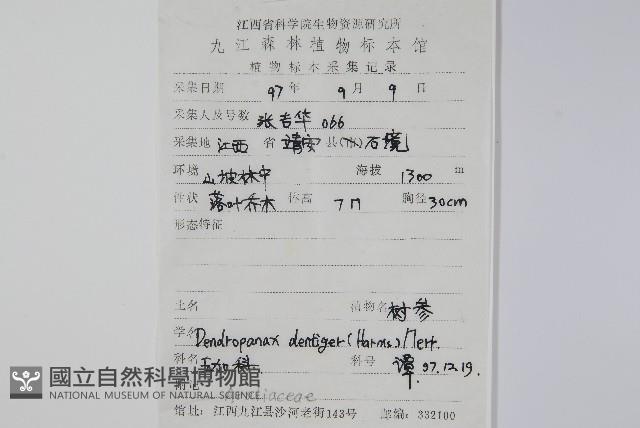 江西省科学院生物资源研究所
九江森林植物标本馆
植物标本采集记录
采集日期 97年 9月 9日
采集人及号数 张吉华 066
采集地 江西 省 靖安 县(市) 石境
环境 山坡林中 海拔 1300 m
性状 落叶乔木 株高 7m 胸径 30cm
形态特征
土名 植物名 树参
学名 Dendropanax dentiger (Harms.) Merr.
科名 五加科 科号 谭 97.12.19.
附记 Araliaceae
國立自然科學博物館
NATIONAL MUSEUM OF NATURAL SCIENCE
馆址: 江西九江县沙河老街143号 邮编: 332100